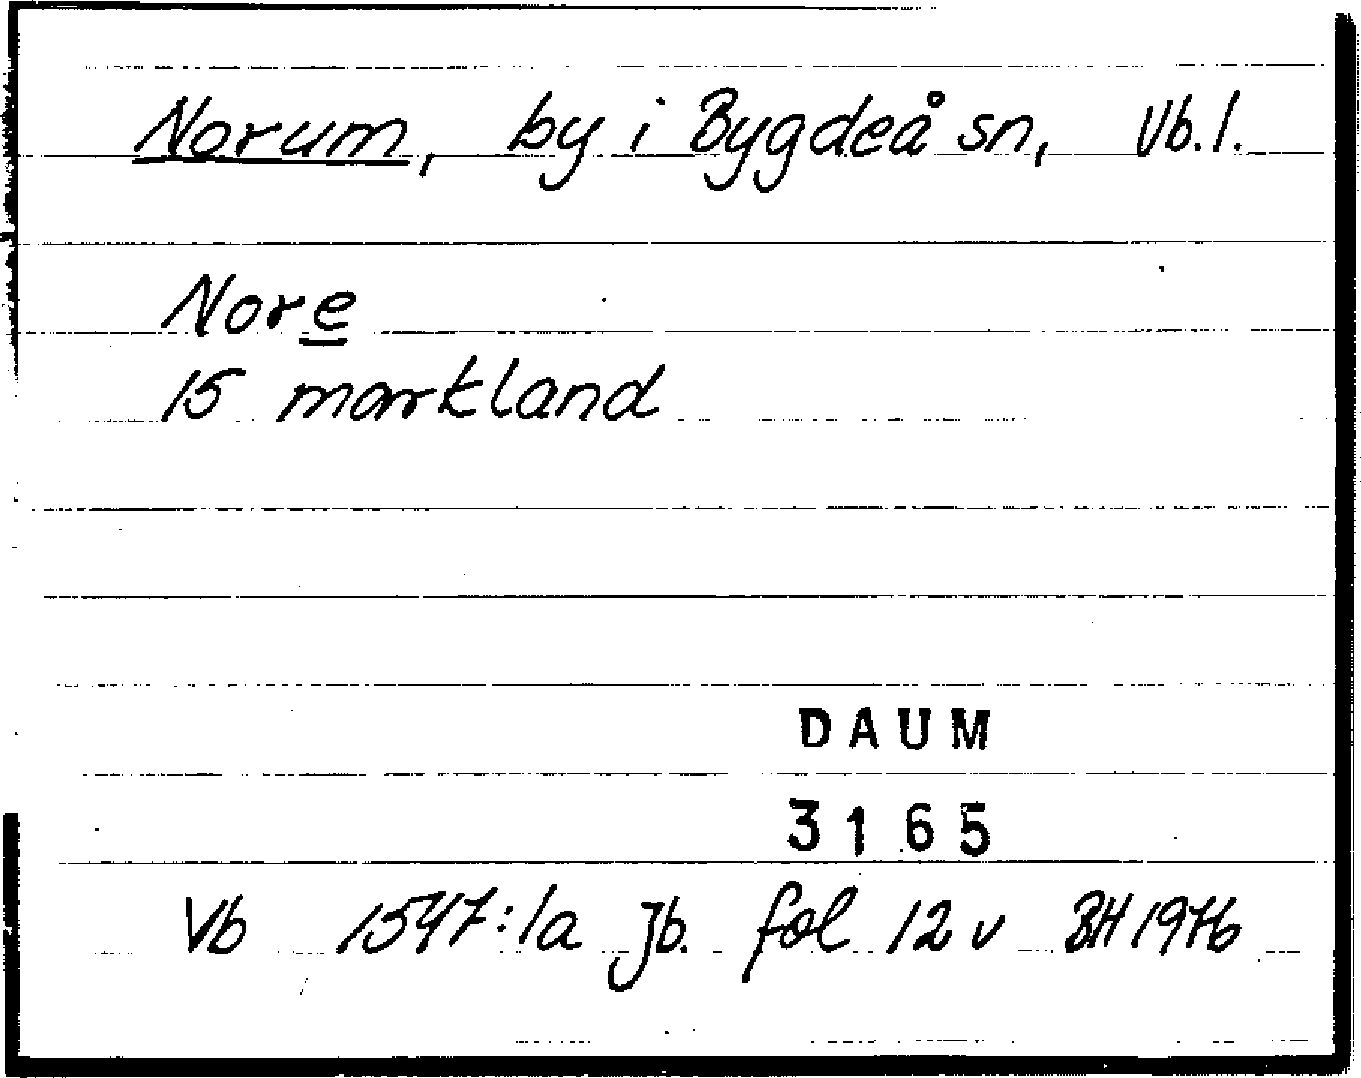 Norum, by i Bygdeå sn, Vb.l.
Nore
15 markland
DAUM
3165
Vb 1547:1a Jb. fol 12 v BH 1976